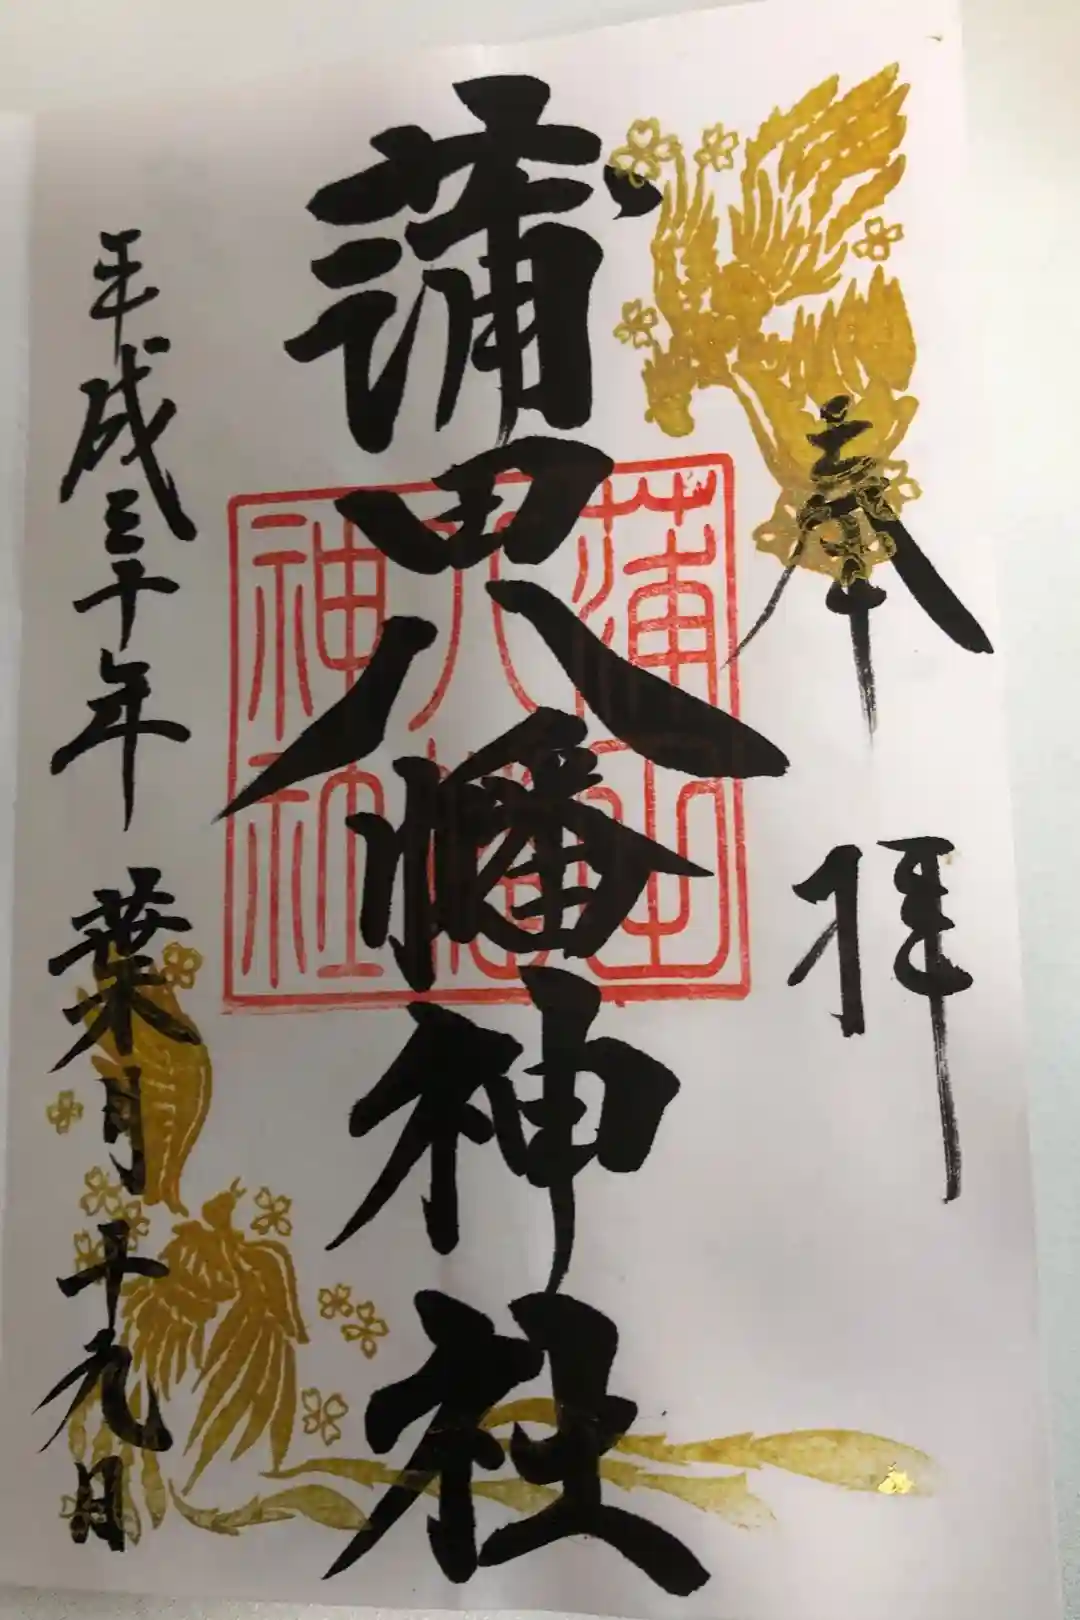 奉拝
蒲田八幡神社
蒲田
八幡
神社
平成三十年葉月十九日